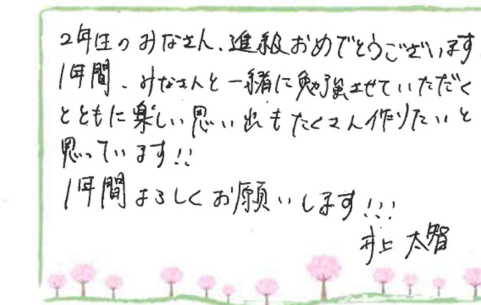 2年生のみなさん、進級おめでとうございます
1年間、みなさんと一緒に勉強させていただく
とともに楽しい思い出もたくさん作りたいと
思っています!!
1年間よろしくお願いします!!!
井上 太智